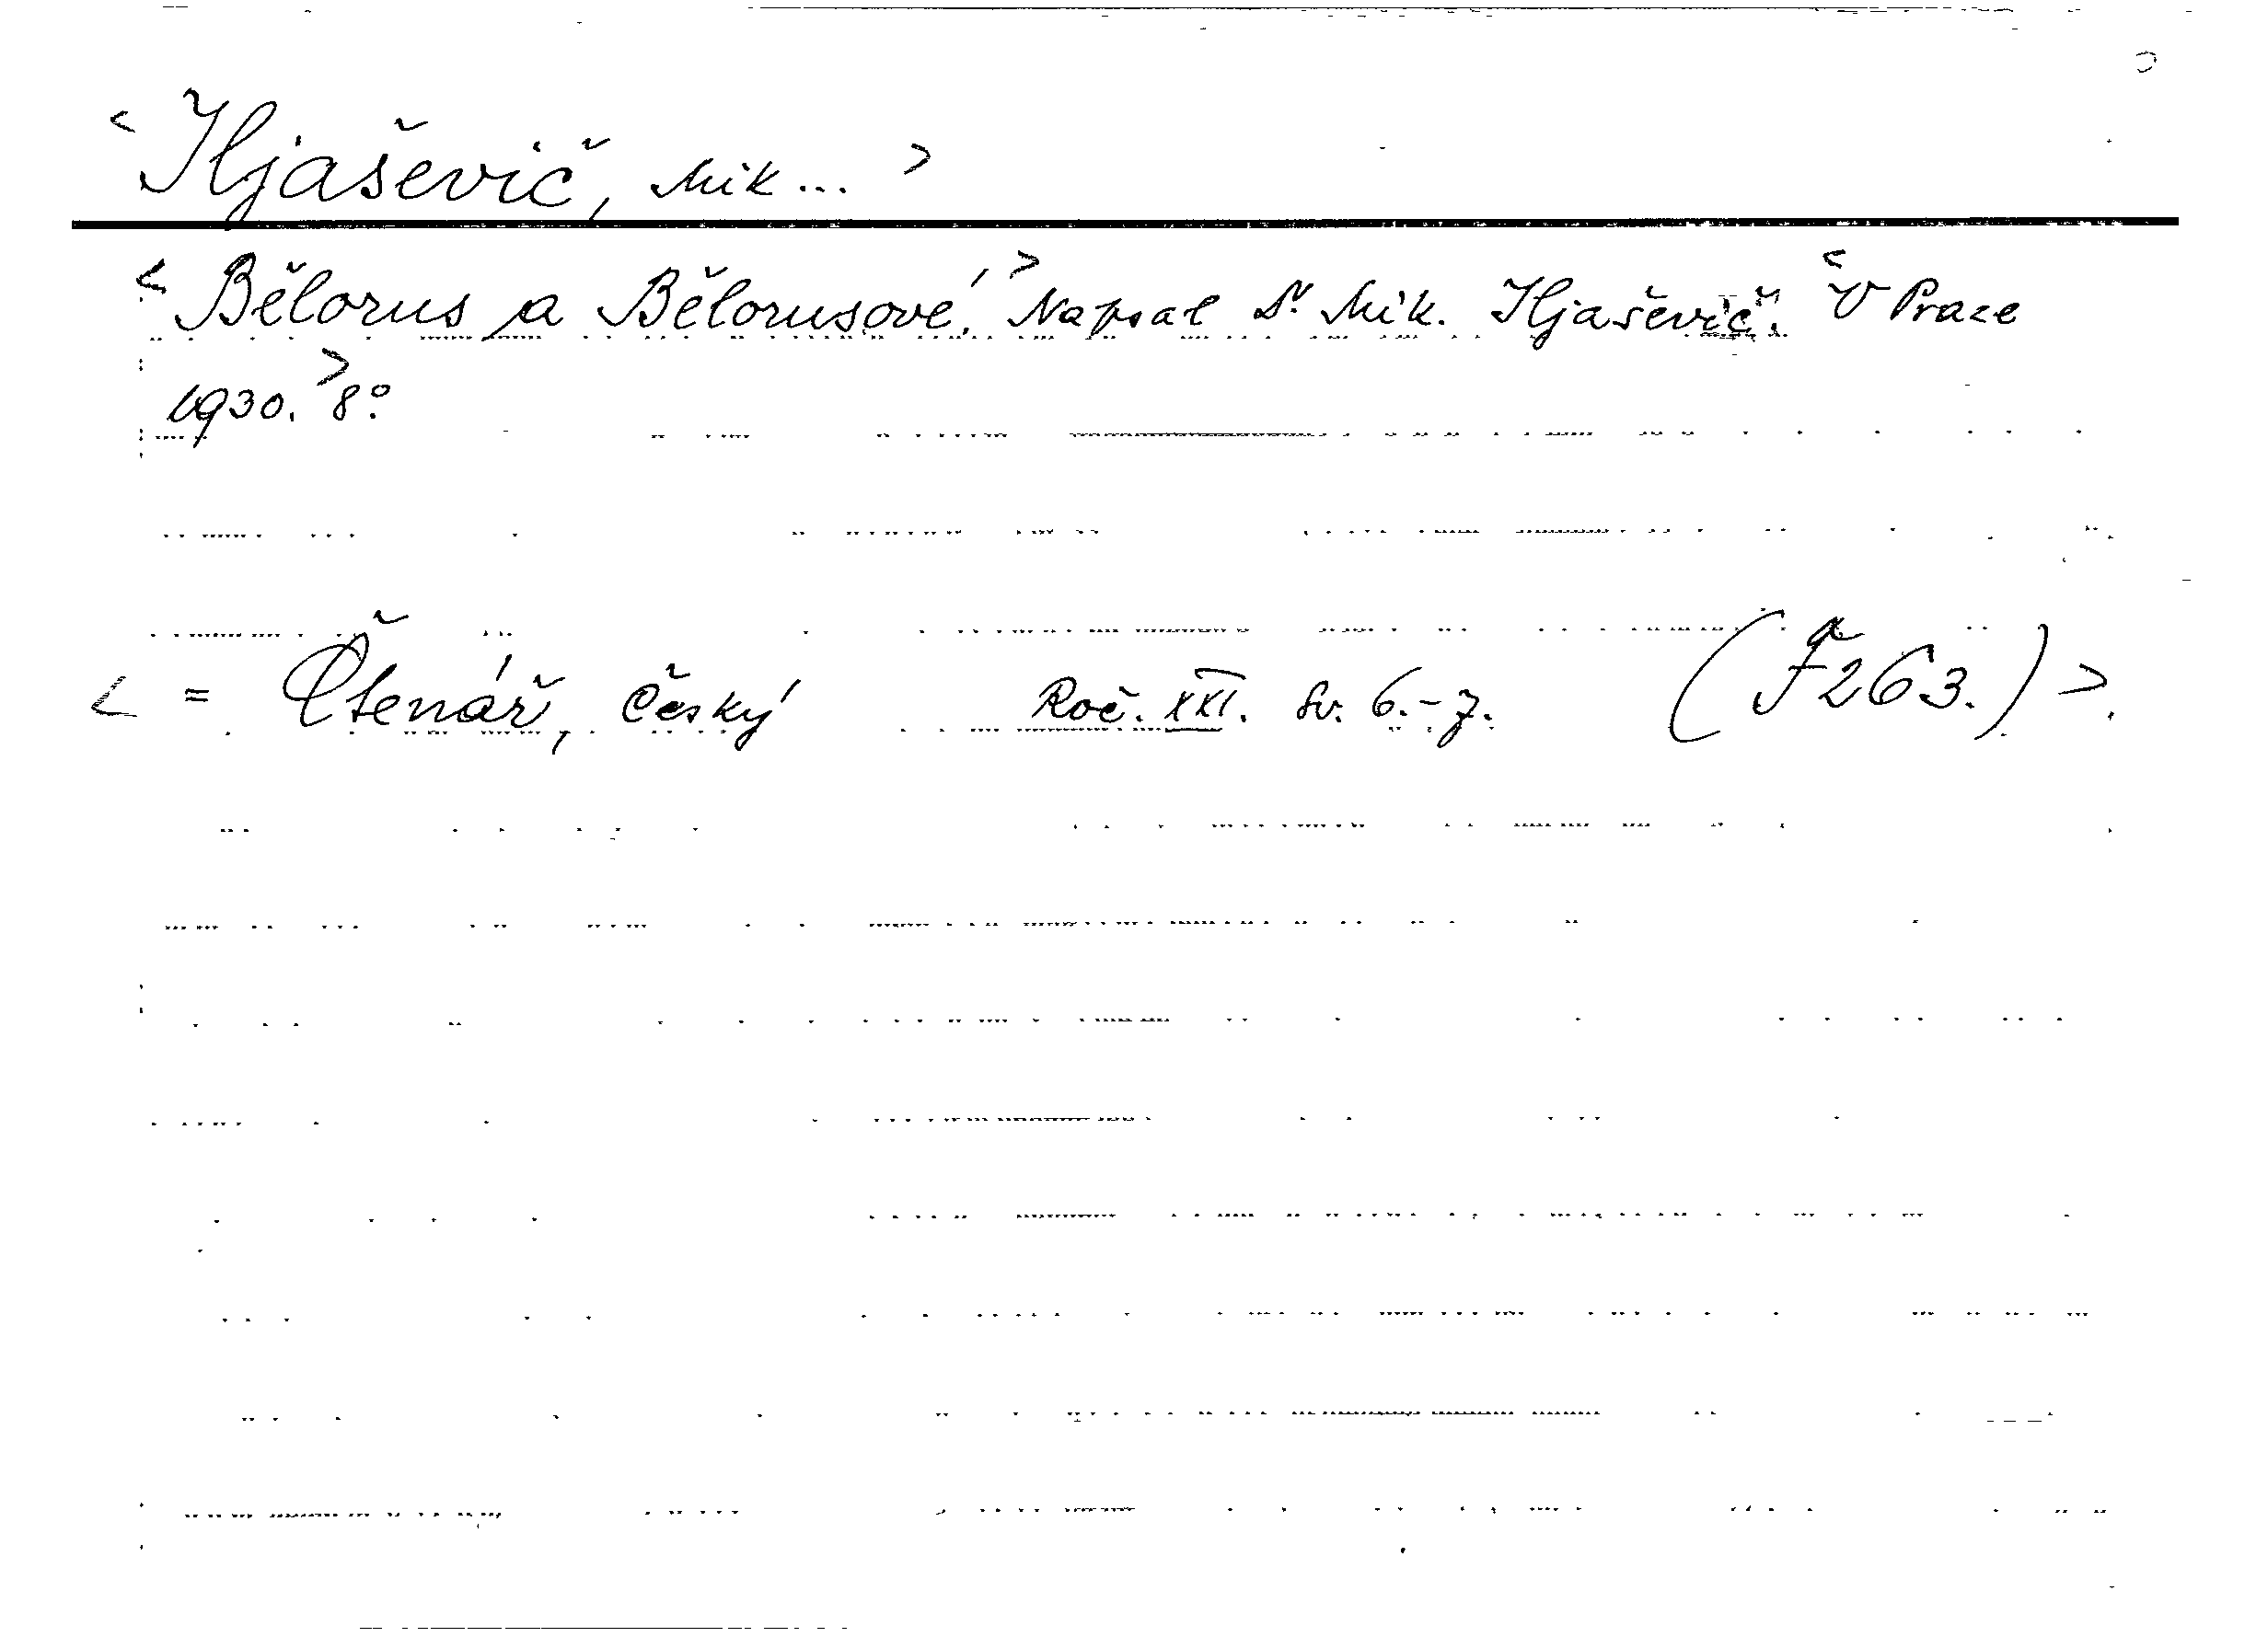 < Iljašević, Mik... >
< Bělorus a Bělorusové. > Napsal Dr. Mik. Iljašević. < V Praze
1930. > 8°.
< = Čtenář, Český Roč. XXI. Sv. 6.-7. (F 263.) >